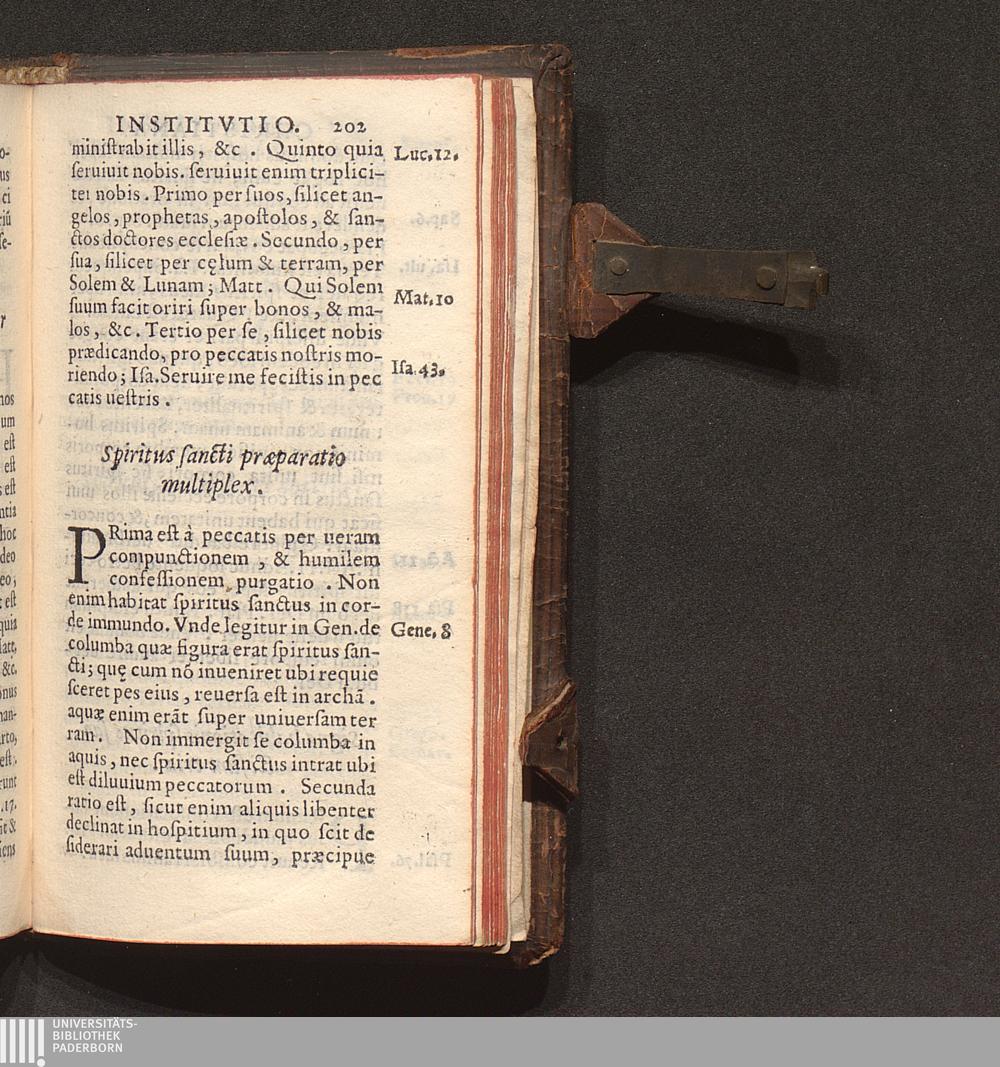 INSTITVTIO. 202
miniſtrabit illis, &c. Quinto quia
Luc.12.
ſeruiuit nobis. ſeruiuit enim triplici-
ter nobis. Primo per ſuos, ſilicet an-
gelos, prophetas, apoſtolos, & ſan-
ctos doctores ecclefiæ. Secundo, per
ſua, ſilicet per cęlum & terram, per
Solem & Lunam; Matt. Qui Solem
Mat.10
ſuum facit oriri ſuper bonos, & ma-
los, &c. Tertio per ſe, ſilicet nobis
prædicando, pro peccatis noſtris mo-
riendo; Iſa. Seruire me feciſtis in pec
Iſa 43.
catis ueſtris.
Spiritus ſancti præparatio
multiplex.
PRima eſt à peccatis per ueram
compunctionem, & humilem
confeſſionem purgatio. Non
enim habitat ſpiritus ſanctus in cor-
de immundo. Vnde legitur in Gen. de
Gene. 8
columba quæ figura erat ſpiritus ſan-
cti; quę cum nō inueniret ubi requie
ſceret pes eius, reuerſa eſt in archā.
aquæ enim erāt ſuper uniuerſam ter
ram. Non immergit ſe columba in
aquis, nec ſpiritus ſanctus intrat ubi
eſt diluuium peccatorum. Secunda
ratio eſt, ſicut enim aliquis libenter
declinat in hoſpitium, in quo ſcit de
ſiderari aduentum ſuum, præcipue
UNIVERSITÄTS-
BIBLIOTHEK
PADERBORN